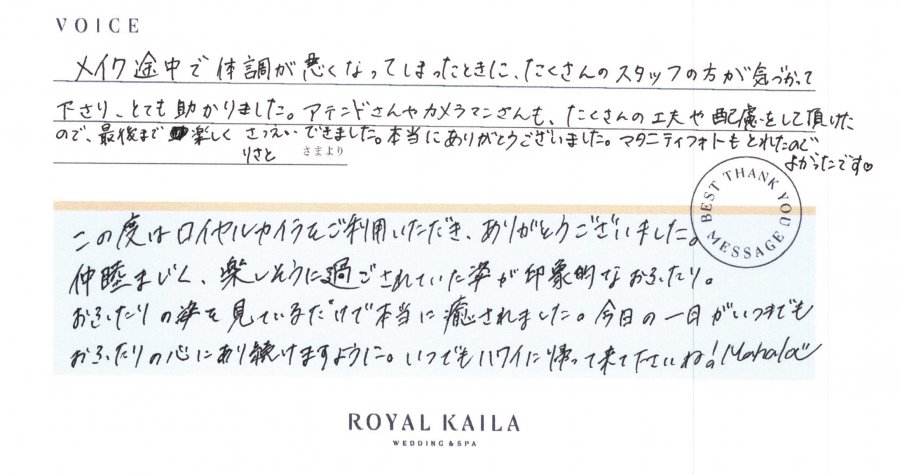 VOICE
メイク途中で体調が悪くなってしまったときに、たくさんのスタッフの方が気づかって
下さり、とても助かりました。アテンドさんやカメラマンさんも、たくさんの工夫や配慮をして頂けた
ので、最後まで楽しくさつえいできました。本当にありがとうございました。マタニティフォトもとれたので
よかったです♡
りさと さまより
BEST THANK YOU MESSAGE
この度はロイヤルカイラをご利用いただき、ありがとうございました。
仲睦まじく、楽しそうに過ごされていた姿が印象的なおふたり。
おふたりの姿を見ているだけで本当に癒されました。今日の一日がいつまでも
おふたりの心にあり続けますように。いつでもハワイに帰って来て下さいね! Mahalo
ROYAL KAILA
WEDDING & SPA